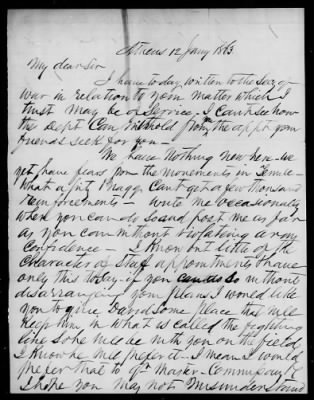 Athens 12 Jany 1863
My dear Sir
I have today written to the Secy of
War in relation to your matter which I
trust may be of service. I can't see how
the Dept can withhold from the appt your
friends seek for you -
We have nothing new here - we
yet have fears from the movements in Tennle -
What a pity Bragg can't get a few thousand
reinforcements! - Write me occasionally
when you can do so and post me as far
as you can without violating army
confidence - I know but little of the
character of staff appointments & have
only this to say - if you can do so without
disarranging your plans I would like
you to give David some place that will
keep him in what is called the fighting
line so he will be with you on the field
I know he will prefer it - I mean I would
prefer that to Qr Master - Commissary &c
I hope you may not misunderstand